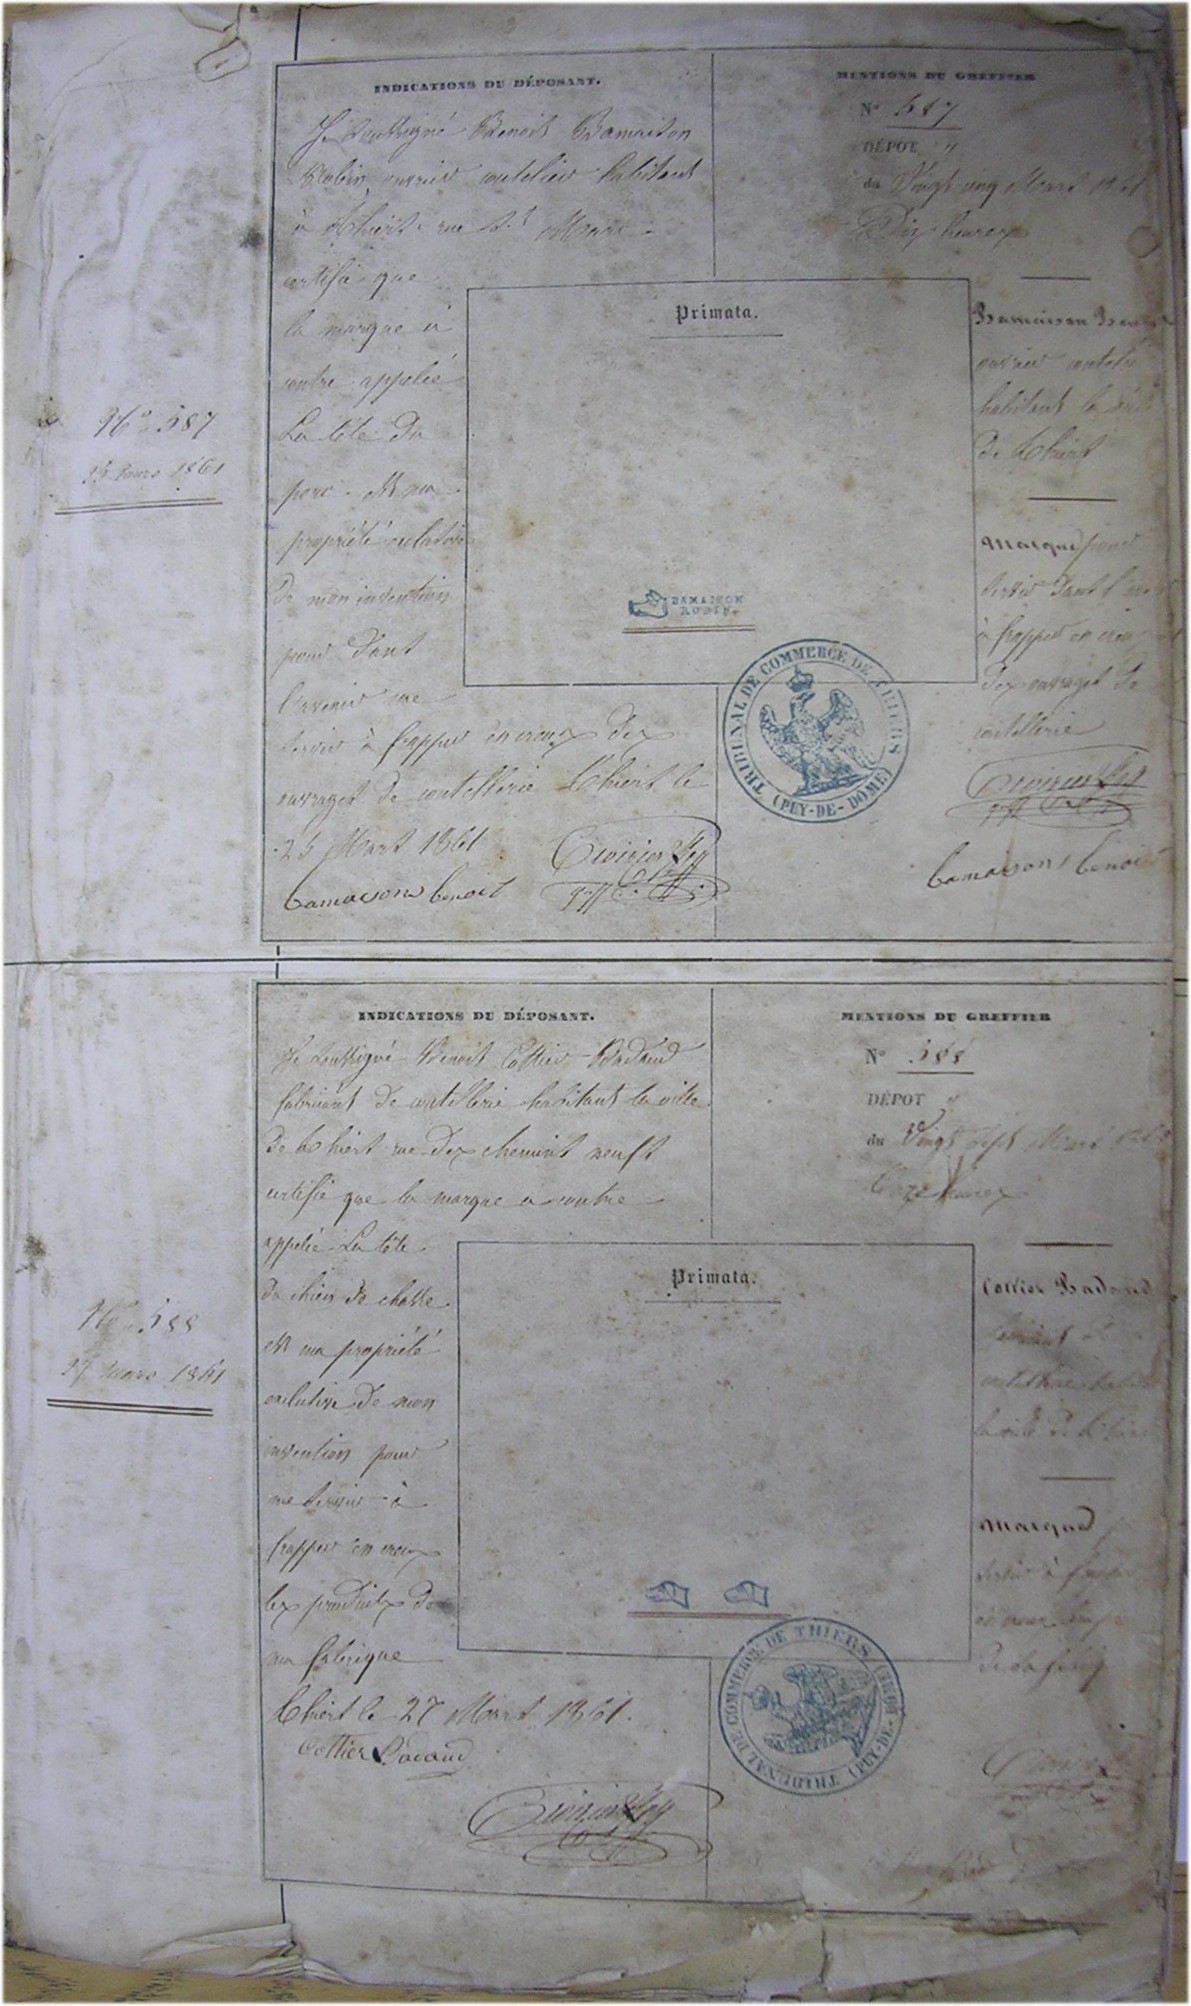 INDICATIONS DU DÉPOSANT.
Je soussigné Benoit Bamaison
Robin ouvrier coutelier habitant
à Thiers rue St Marc
certifie que
la marque ci
contre appelée
La tête du
porc est ma
propriété exclusive
de mon invention
pour dans
l'avenir me
servir à frapper en creux des
ouvrages de coutellerie Thiers le
25 Mars 1861
bamaison benoit
MENTIONS DU GREFFIER
No 587
DÉPOT
du Vingt cinq Mars 1861
Dix heures
Bamaison Benoit
ouvrier
habitant la ville
de Thiers
Marque pour
servir dans l'
à frapper en creux
des ouvrages de
coutellerie
bamaison benoit
Primata.
BAMAISON
ROBIN
TRIBUNAL DE COMMERCE DE THIERS
(PUY-DE-DOME)
No 587
25 mars 1861
INDICATIONS DU DÉPOSANT.
Je soussigné Benoit Cottier Badaud
fabricant de coutellerie habitant la ville
de Thiers rue des chemins neufs
certifie que la marque ci contre
appelée La tête
du chien de chasse
est ma propriété
exclusive de mon
invention pour
me servir à
frapper en creux
les produits de
ma fabrique
Thiers le 27 Mars 1861.
Cottier Badaud
MENTIONS DU GREFFIER
No 588
DÉPOT
du Vingt sept Mars
Onze heures
Cottier Badaud
fabricant de
coutellerie
la ville de Thiers
Marque
servir à
Primata.
TRIBUNAL DE COMMERCE DE THIERS
(PUY-DE-
No 588
27 mars 1861